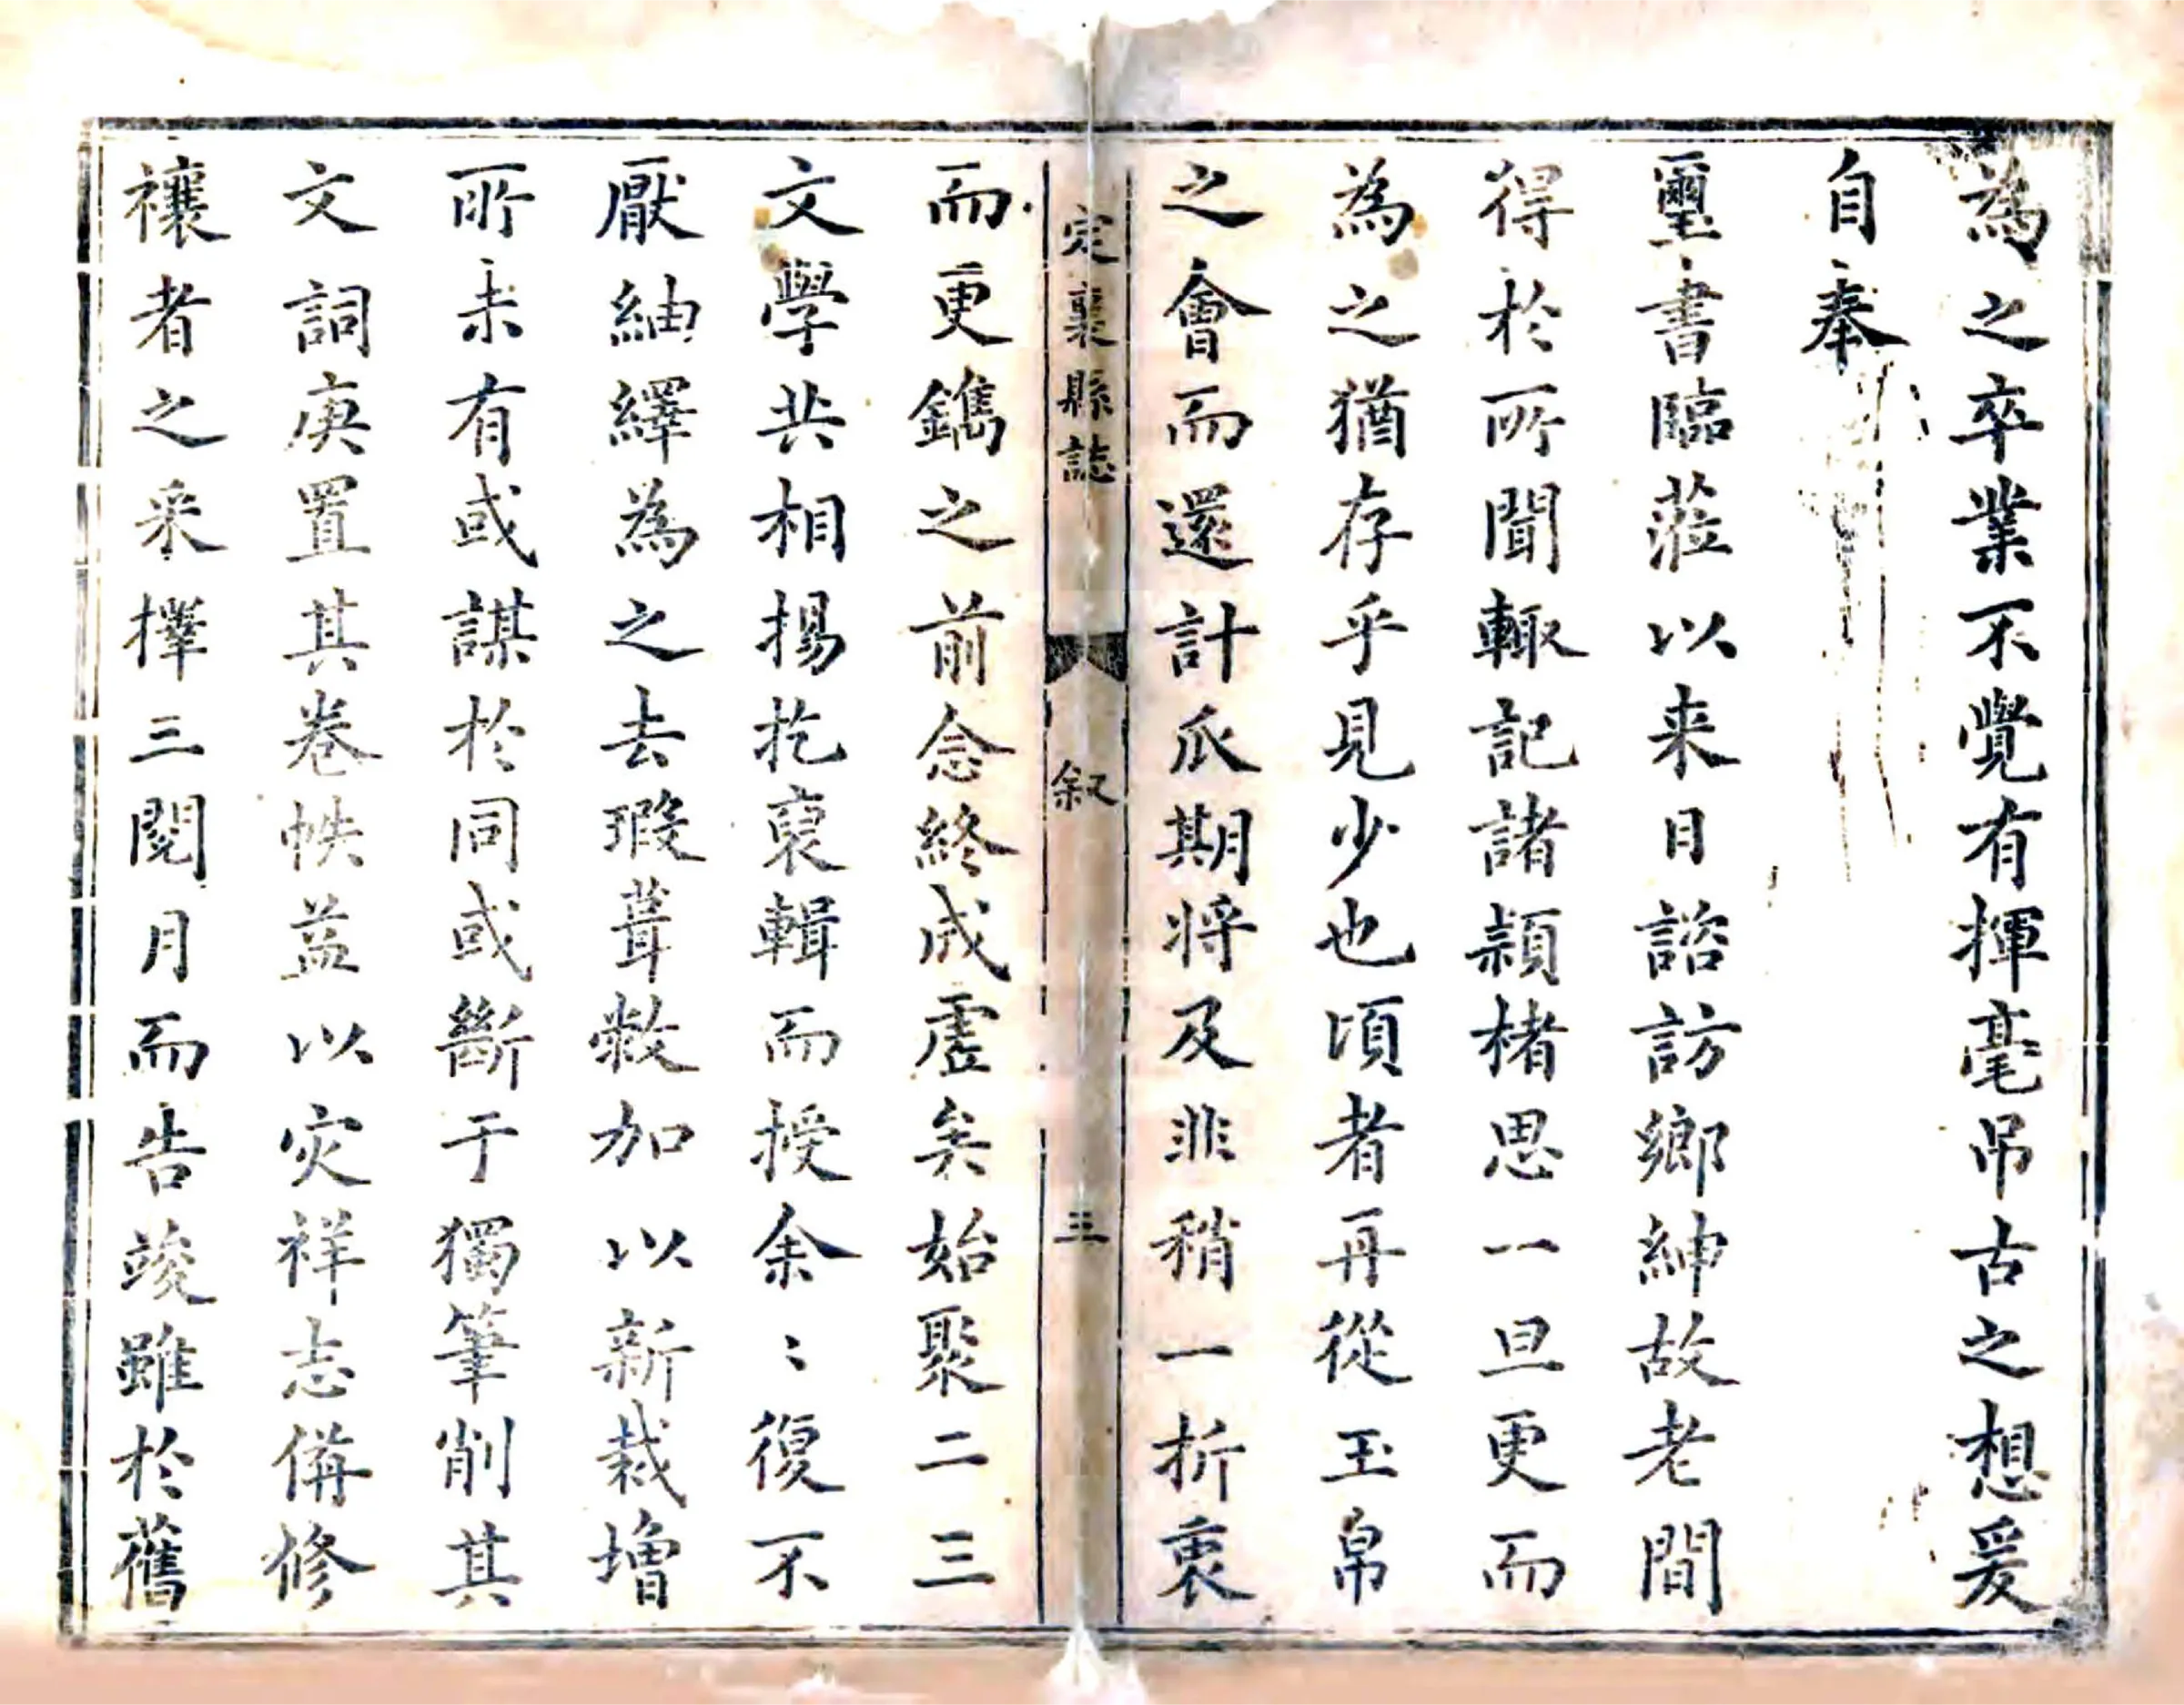 為之卒業不覺有揮毫吊古之想爰
自奉
璽書臨蒞以来日諮訪鄉紳故老間
得於所聞輙記諸頴楮思一旦更而
為之猶存乎見少也頃者再從玉帛
之會而還計瓜期将及韭稍一折衷
定襄縣誌
叙
三
而更鐫之前念終成虗矣始聚二三
文學共相揚扢裒輯而授余〻復不
厭紬繹為之去瑕葺敝加以新裁增
所未有或謀於同或斷于獨筆削其
文詞庚置其卷帙益以灾祥志備修
禳者之采擇三閱月而告竣雖於舊